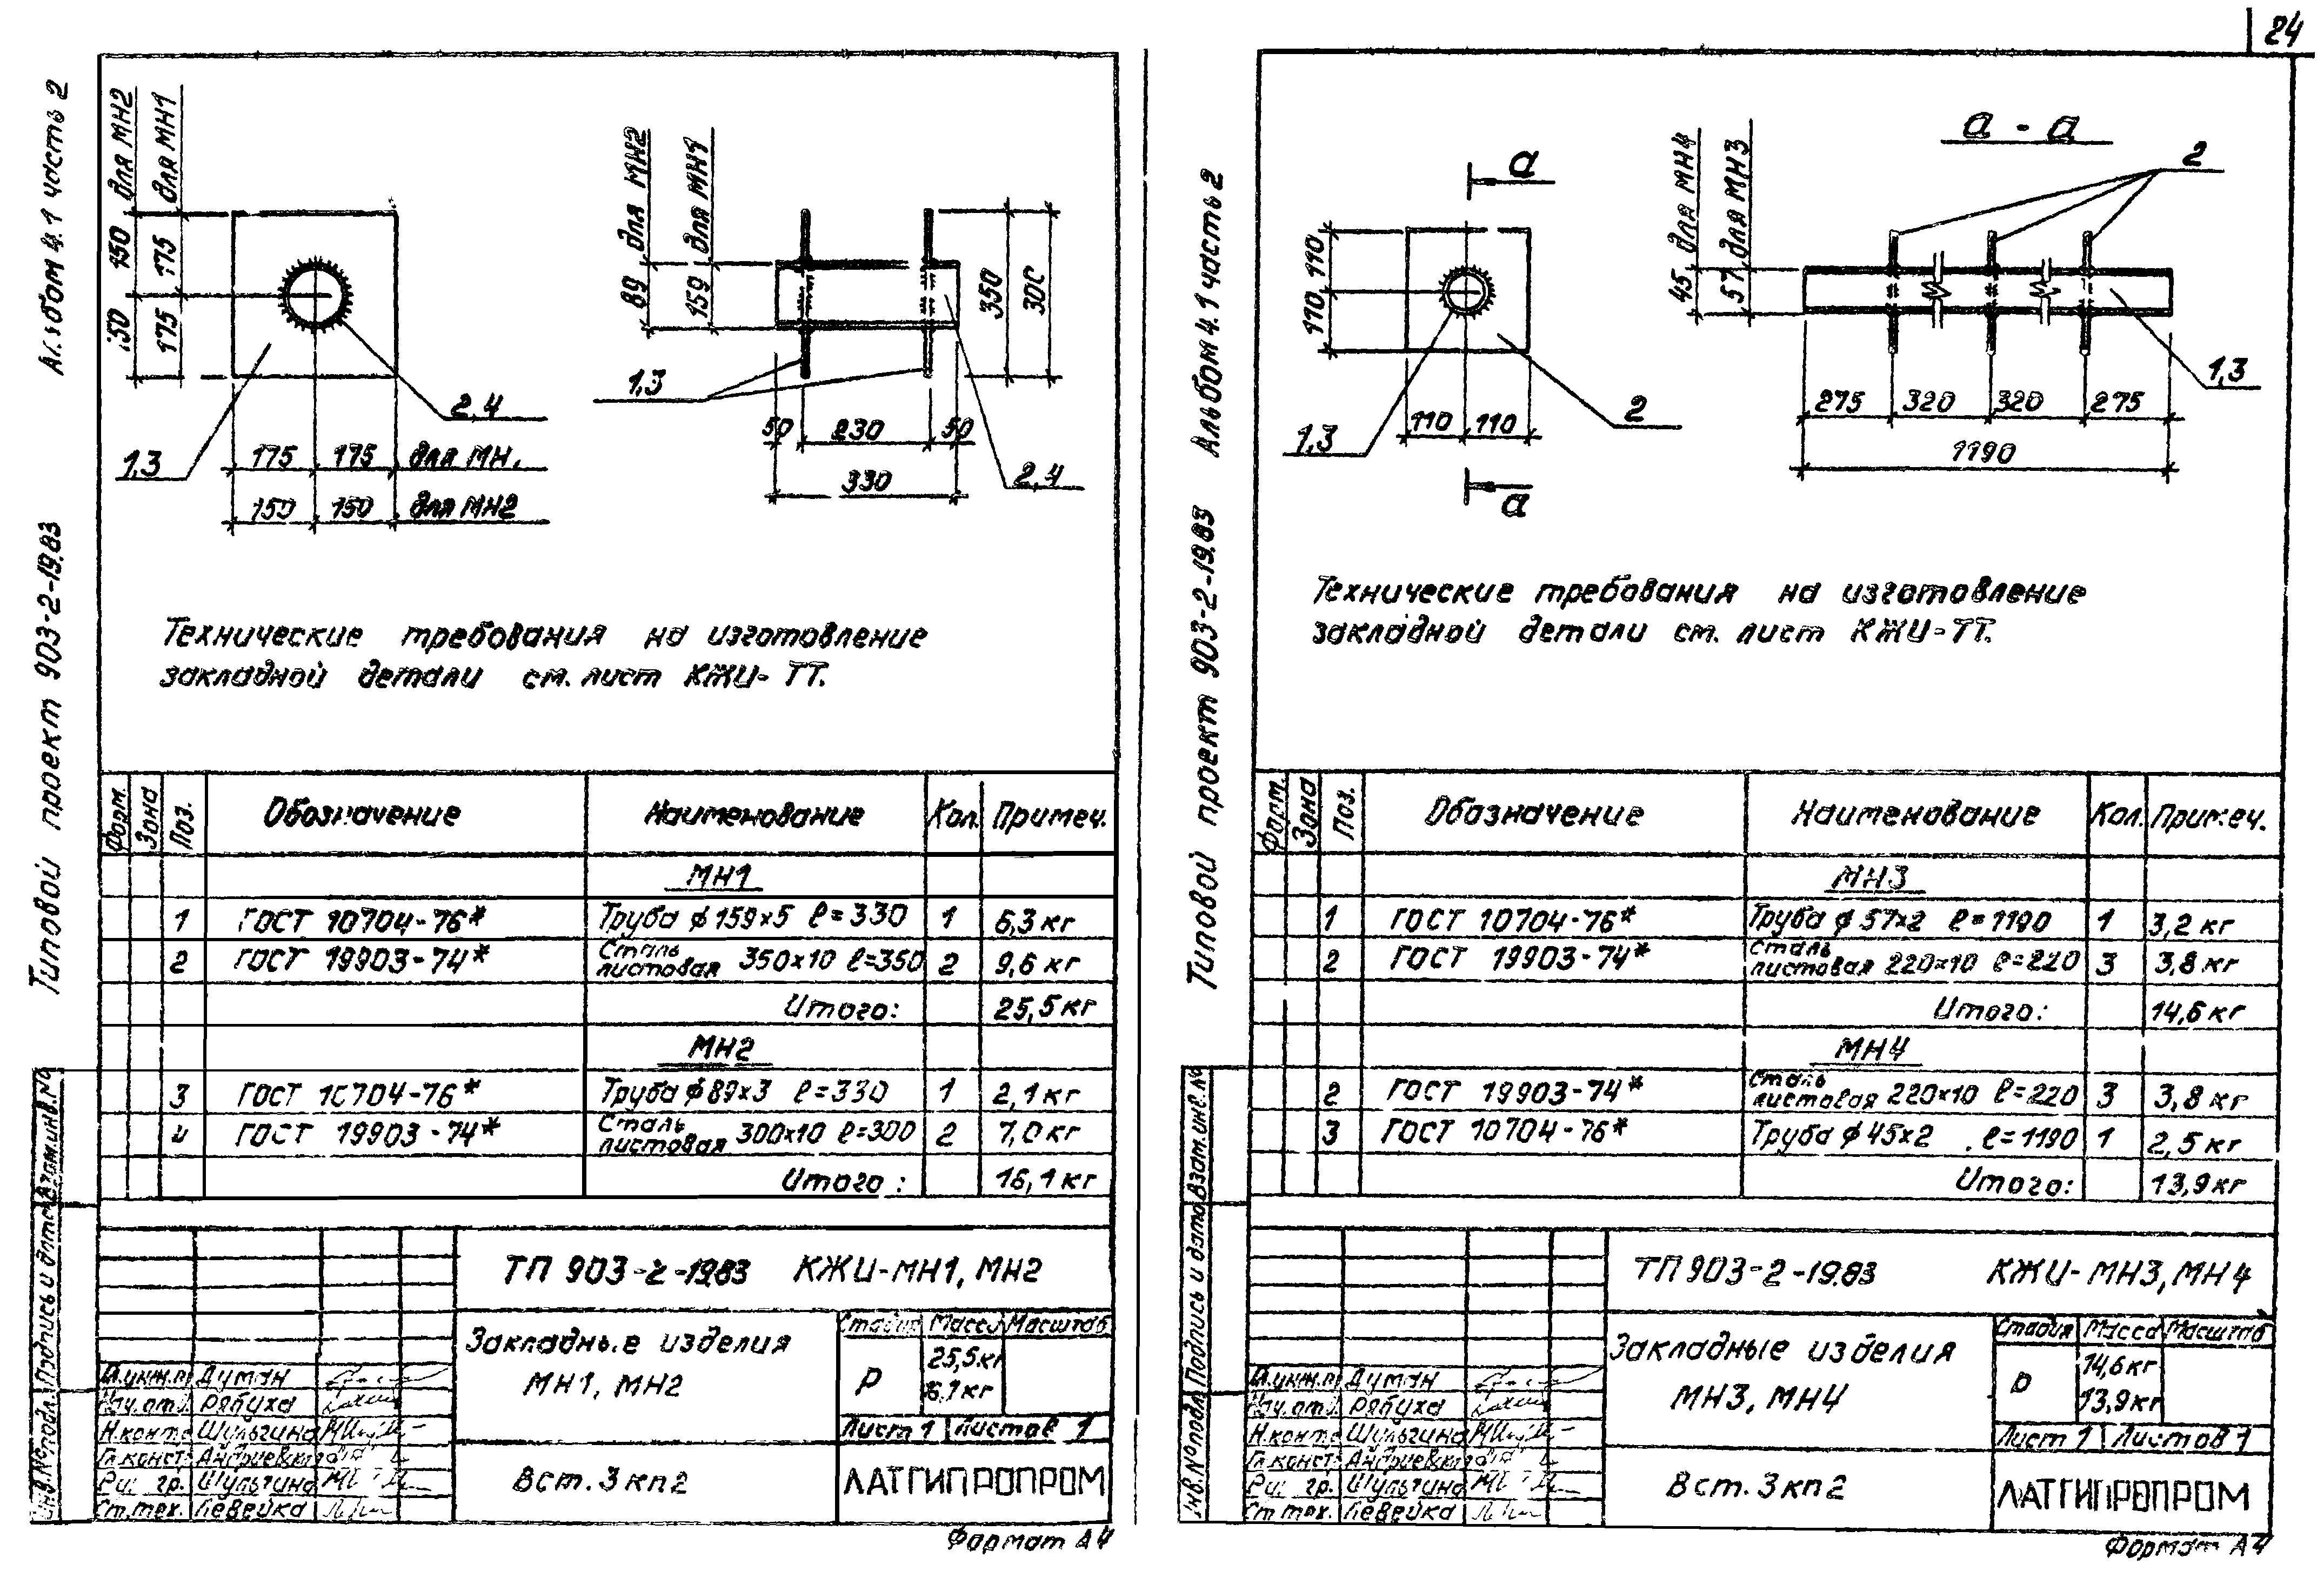 24
Альбом 4.1 часть 2
Типовой проект 903-2-19.83
150 для МН2
175 для МН1
150
175
89 для МН2
159 для МН1
350
300
1,3
2,4
175 175 для МН1
150 150 для МН2
1,3
50 230 50
330
2,4
Технические требования на изготовление
закладной детали см. лист КЖИ-ТТ.
Форм. Зона Поз. Обозначение Наименование Кол. Примеч.
МН1
1 ГОСТ 10704-76* Труба ϕ159х5 ℓ=330 1 6,3 кг
2 ГОСТ 19903-74* Сталь листовая 350х10 ℓ=350 2 9,6 кг
Итого: 25,5 кг
МН2
3 ГОСТ 10704-76* Труба ϕ89х3 ℓ=330 1 2,1 кг
4 ГОСТ 19903-74* Сталь листовая 300х10 ℓ=300 2 7,0 кг
Итого: 16,1 кг
Инв.№ подл. Подпись и дата Взам.инв.№
ТП 903-2-19.83 КЖИ-МН1, МН2
Закладные изделия
МН1, МН2
Стадия Масса Масштаб
Р 25,5кг
16,1кг
Лист 1 Листов 1
Гл.инж.п Думан
Нач.отд. Рябуха
Н.конт. Шульгина
Гл.конст.
Рук. гр. Шульгина
Ст.тех. Левейка
Вст. 3 кп2
ЛАТГИПРОПРОМ
Формат А4
Альбом 4.1 часть 2
Типовой проект 903-2-19.83
а
110 110
110 110
1,3
2
а
а - а
45 для МН4
57 для МН3
2
1,3
275 320 320 275
1190
Технические требования на изготовление
закладной детали см. лист КЖИ-ТТ.
Форм. Зона Поз. Обозначение Наименование Кол. Примеч.
МН3
1 ГОСТ 10704-76* Труба ϕ57х2 ℓ=1190 1 3,2 кг
2 ГОСТ 19903-74* Сталь листовая 220х10 ℓ=220 3 3,8 кг
Итого: 14,6 кг
МН4
2 ГОСТ 19903-74* Сталь листовая 220х10 ℓ=220 3 3,8 кг
3 ГОСТ 10704-76* Труба ϕ45х2 ℓ=1190 1 2,5 кг
Итого: 13,9 кг
Инв.№ подл. Подпись и дата Взам.инв.№
ТП 903-2-19.83 КЖИ-МН3, МН4
Закладные изделия
МН3, МН4
Стадия Масса Масштаб
Р 14,6кг
13,9кг
Лист 1 Листов 1
Гл.инж.п Думан
Нач.отд. Рябуха
Н.конт. Шульгина
Гл.конст.
Рук. гр. Шульгина
Ст.тех. Левейка
Вст. 3 кп2
ЛАТГИПРОПРОМ
Формат А4